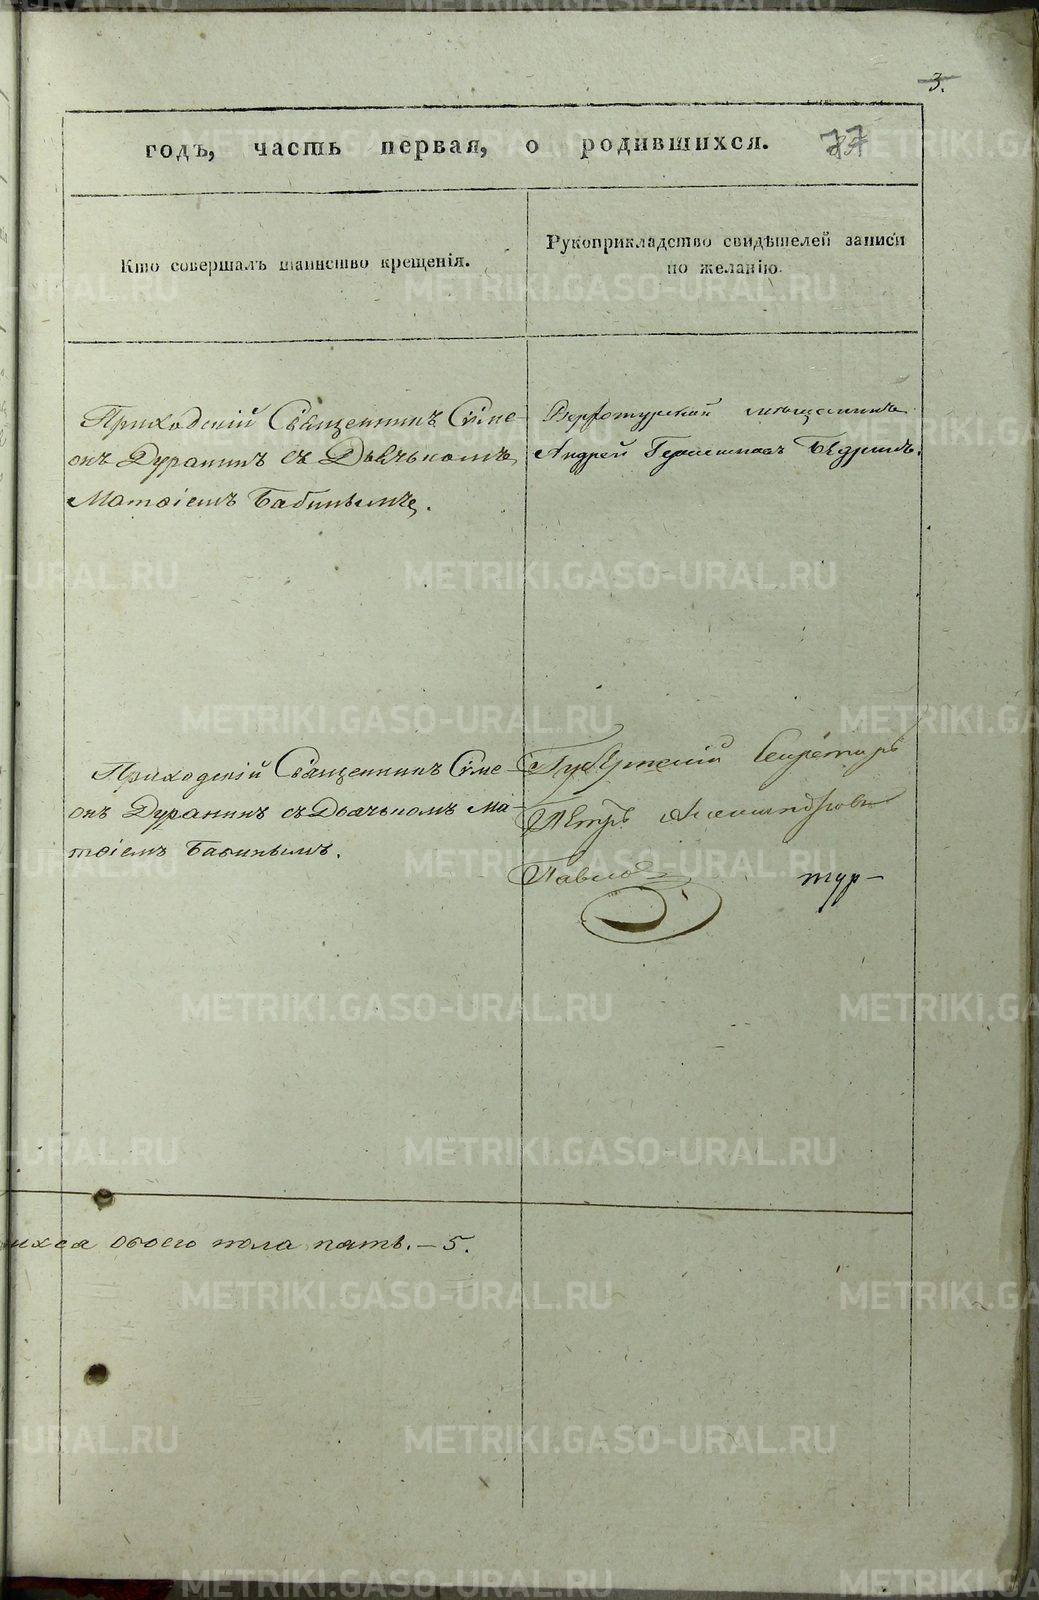 3.
годъ, часть первая, о родившихся. 77
Кто совершалъ таинство крещенія.
Рукоприкладство свидѣтелей записи
по желанію.
Приходскій Священникъ Симе-
онъ Дуранинъ съ Дьячькомъ
Матѳіемъ Бабинымъ.
Верхотурской мещанинъ
Андрей Бедринъ.
Приходскій Священникъ Симе-
онъ Дуранинъ съ Дьячькомъ Ма-
тѳіемъ Бабинымъ.
Губернскій Секретарь
Петръ Александровъ
Павлов
тур-
ихся обоего пола пять. - 5.
METRIKI.GASO-URAL.RU